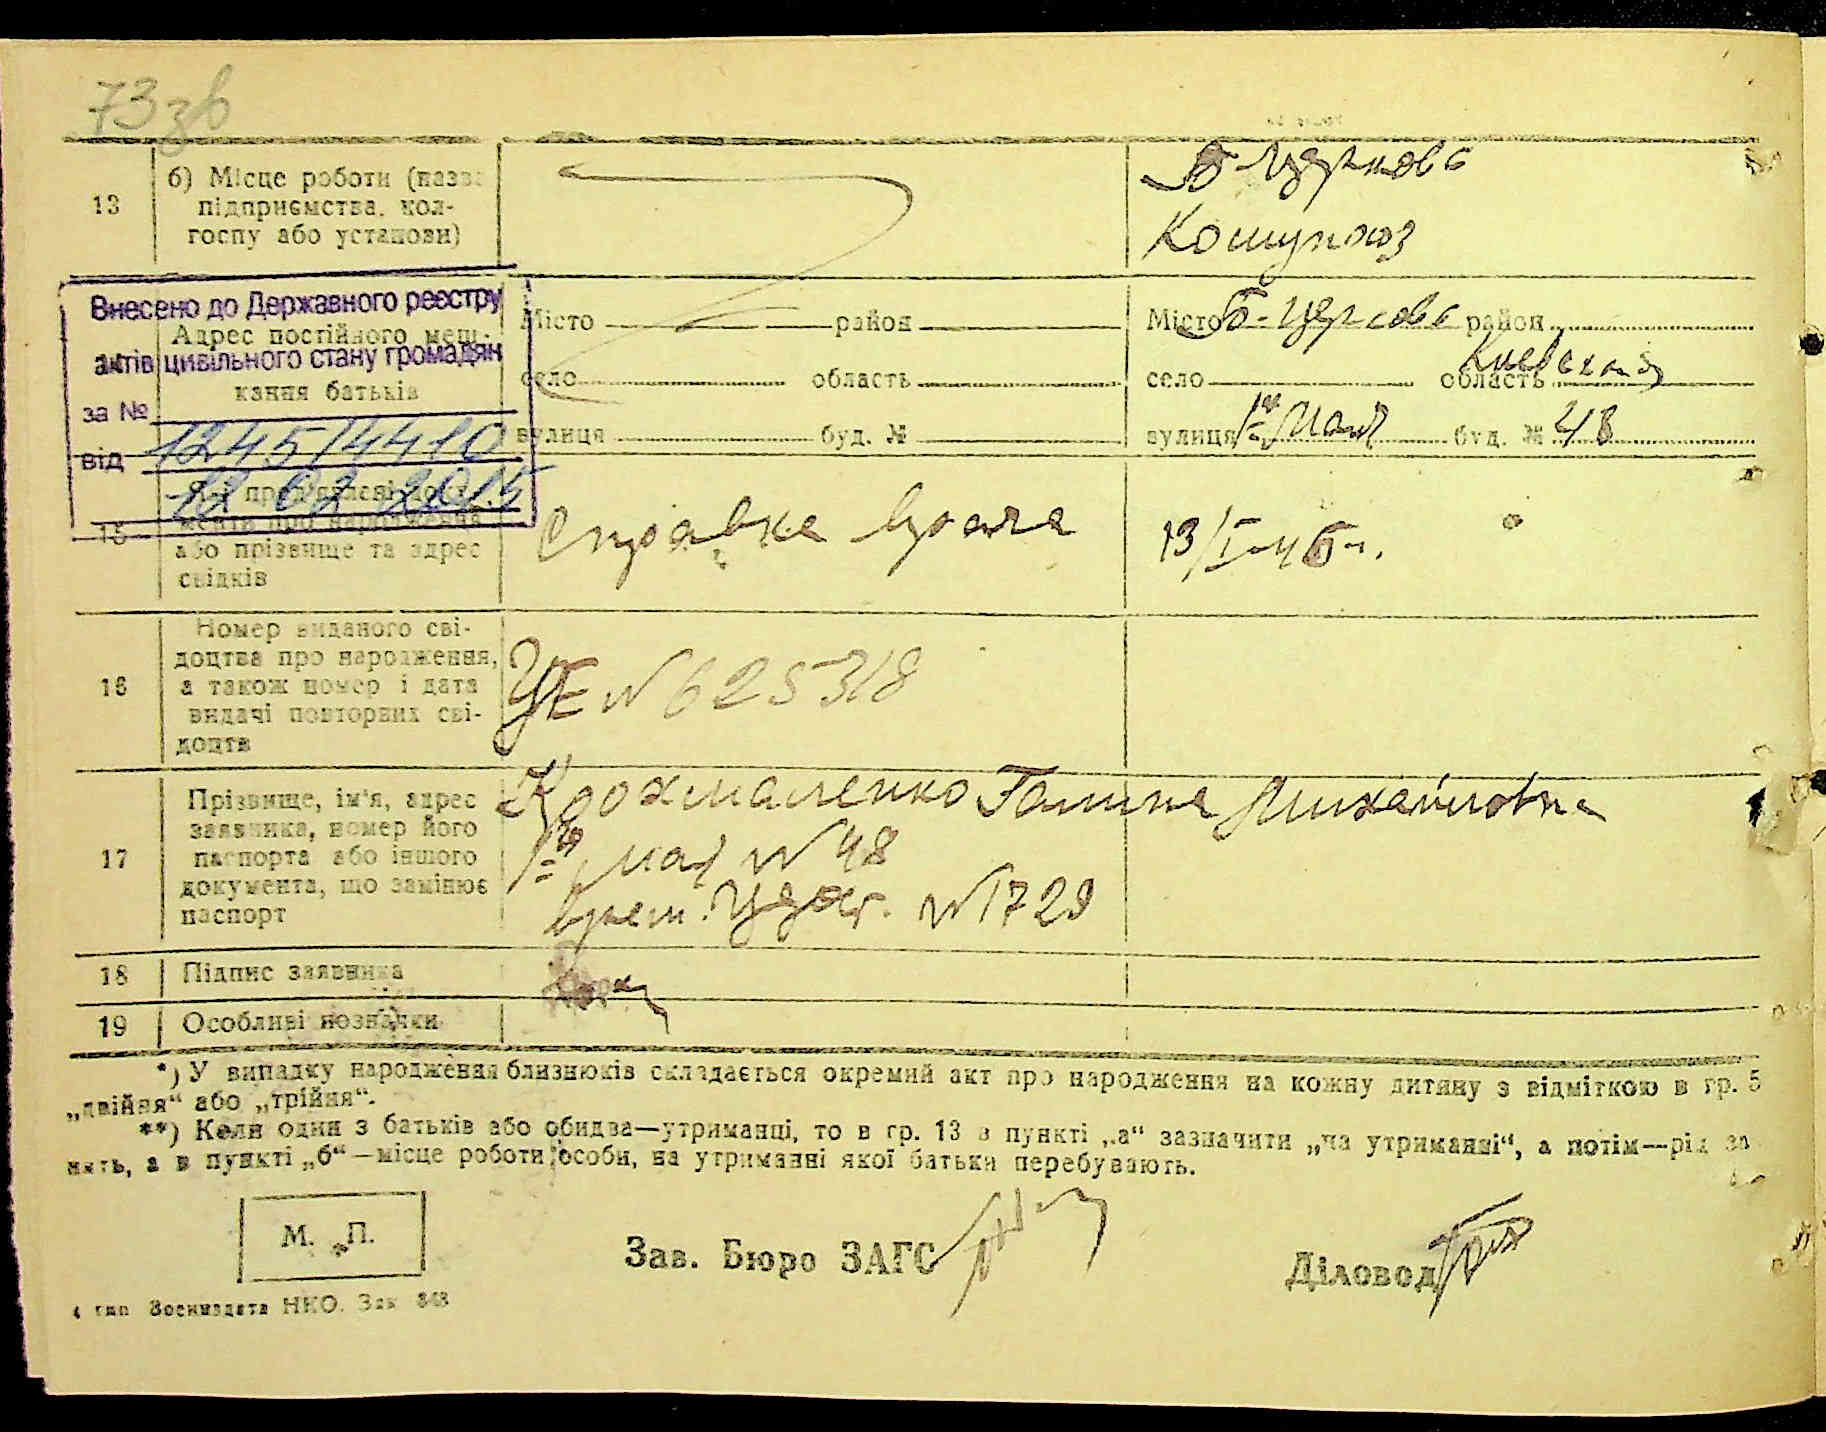 73 зв
13
б) Місце роботи (назва
підприємства, кол-
госпу або установи)
Б-Церковь
Комунхоз
Внесено до Державного реєстру
актів цивільного стану громадян
за № 124574410
від 12 02 2015
Адрес постійного меш-
кання батьків
Місто район
село область
вулиця буд. №
Місто Б-Церковь район
село область Киевская
вулиця 1го Мая буд. № 48
15
Які пред'явлені доку-
менти про народження
або прізвище та адрес
свідків
Справка врача
13/I-46 г.
16
Номер виданого сві-
доцтва про народження,
а також номер і дата
видачі повторних сві-
доцтв
УЕ № 625318
17
Прізвище, ім'я, адрес
заявника, номер його
паспорта або іншого
документа, що замінює
паспорт
Крохмаленко Галина Михайловна
1го мая № 48
врем. удост. № 1729
18
Підпис заявника
19
Особливі позначки
*) У випадку народження близнюків складається окремий акт про народження на кожну дитину з відміткою в гр. 5
„двійня“ або „трійня“.
**) Коли один з батьків або обидва—утриманці, то в гр. 13 в пункті „а“ зазначити „на утриманні“, а потім—рід за
нять, а в пункті „б“—місце роботи особи, на утриманні якої батьки перебувають.
М. П.
Зав. Бюро ЗАГС
Діловод
4 тип Воениздата НКО. Зак 848